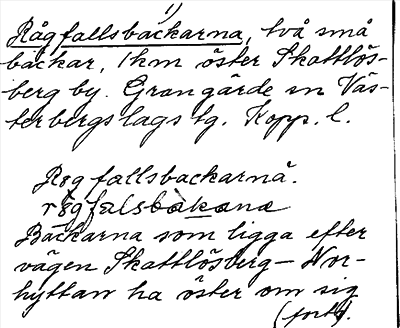 1)
Rågfallsbäckarna, två små
bäckar, 1 km öster Skattlös-
berg by. Grangärde sn Väs-
terbergslags tg. Kopp. l.
Rǫgfallsbackarnå.
rǫgfalsbàkanɑ
Bäckarna som ligga efter
vägen Skattlösberg – Nor-
hyttan ha öster om sig
(forts).